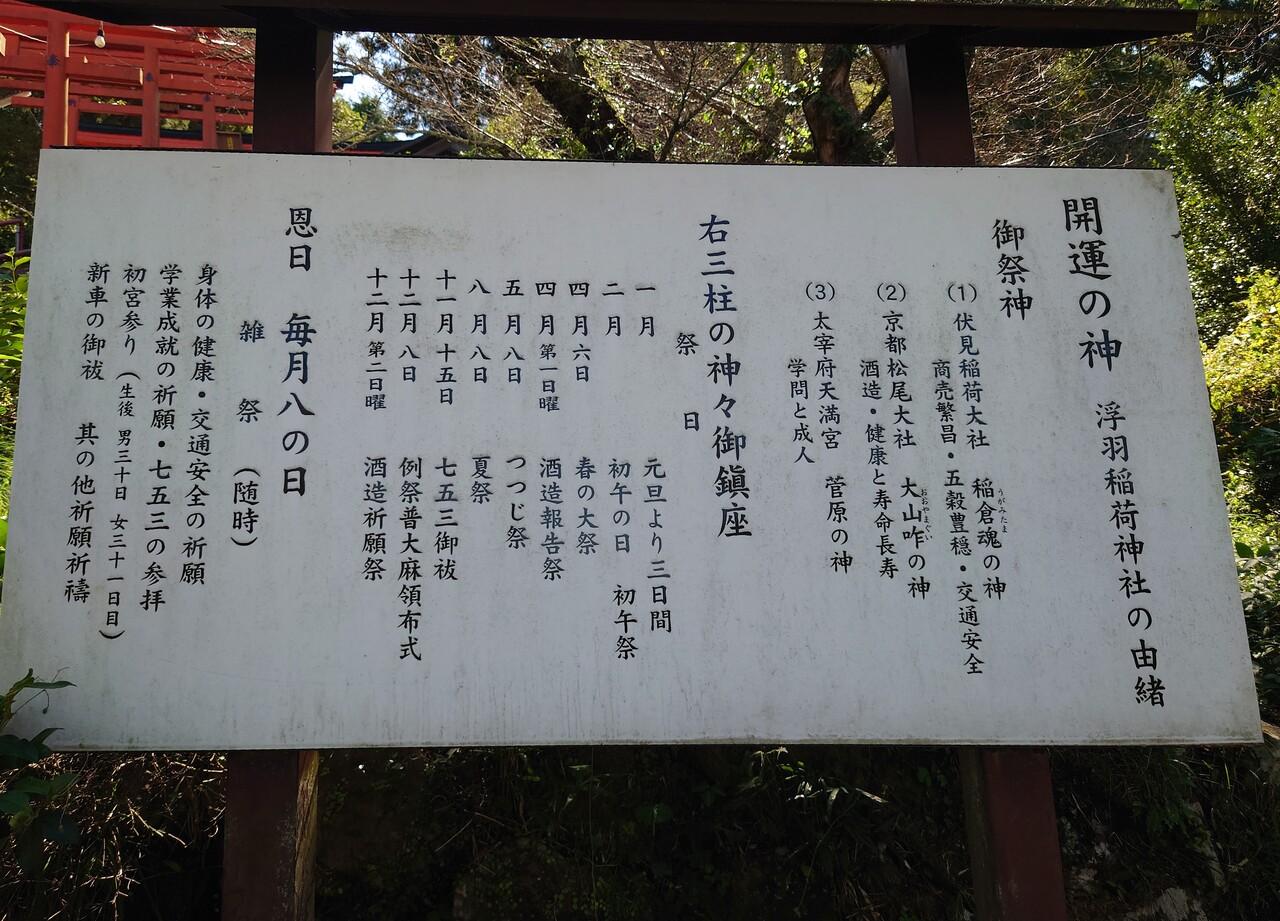 開運の神　浮羽稲荷神社の由緒
御祭神
(1) 伏見稲荷大社　稲倉魂の神
うがみたま
商売繁昌・五穀豊穏・交通安全
(2) 京都松尾大社　大山咋の神
おおやまぐい
酒造・健康と寿命長寿
(3) 太宰府天満宮　菅原の神
学問と成人
右三柱の神々御鎮座
祭日
一月　元旦より三日間
二月　初午の日　初午祭
四月六日　春の大祭
四月第一日曜　酒造報告祭
五月八日　つつじ祭
八月八日　夏祭
十一月十五日　七五三御祓
十二月八日　例祭普大麻領布式
十二月第二日曜　酒造祈願祭
恩日　毎月八の日
雑祭（随時）
身体の健康・交通安全の祈願
学業成就の祈願・七五三の参拝
初宮参り（生後 男三十日 女三十一日目）
新車の御祓　其の他祈願祈禱